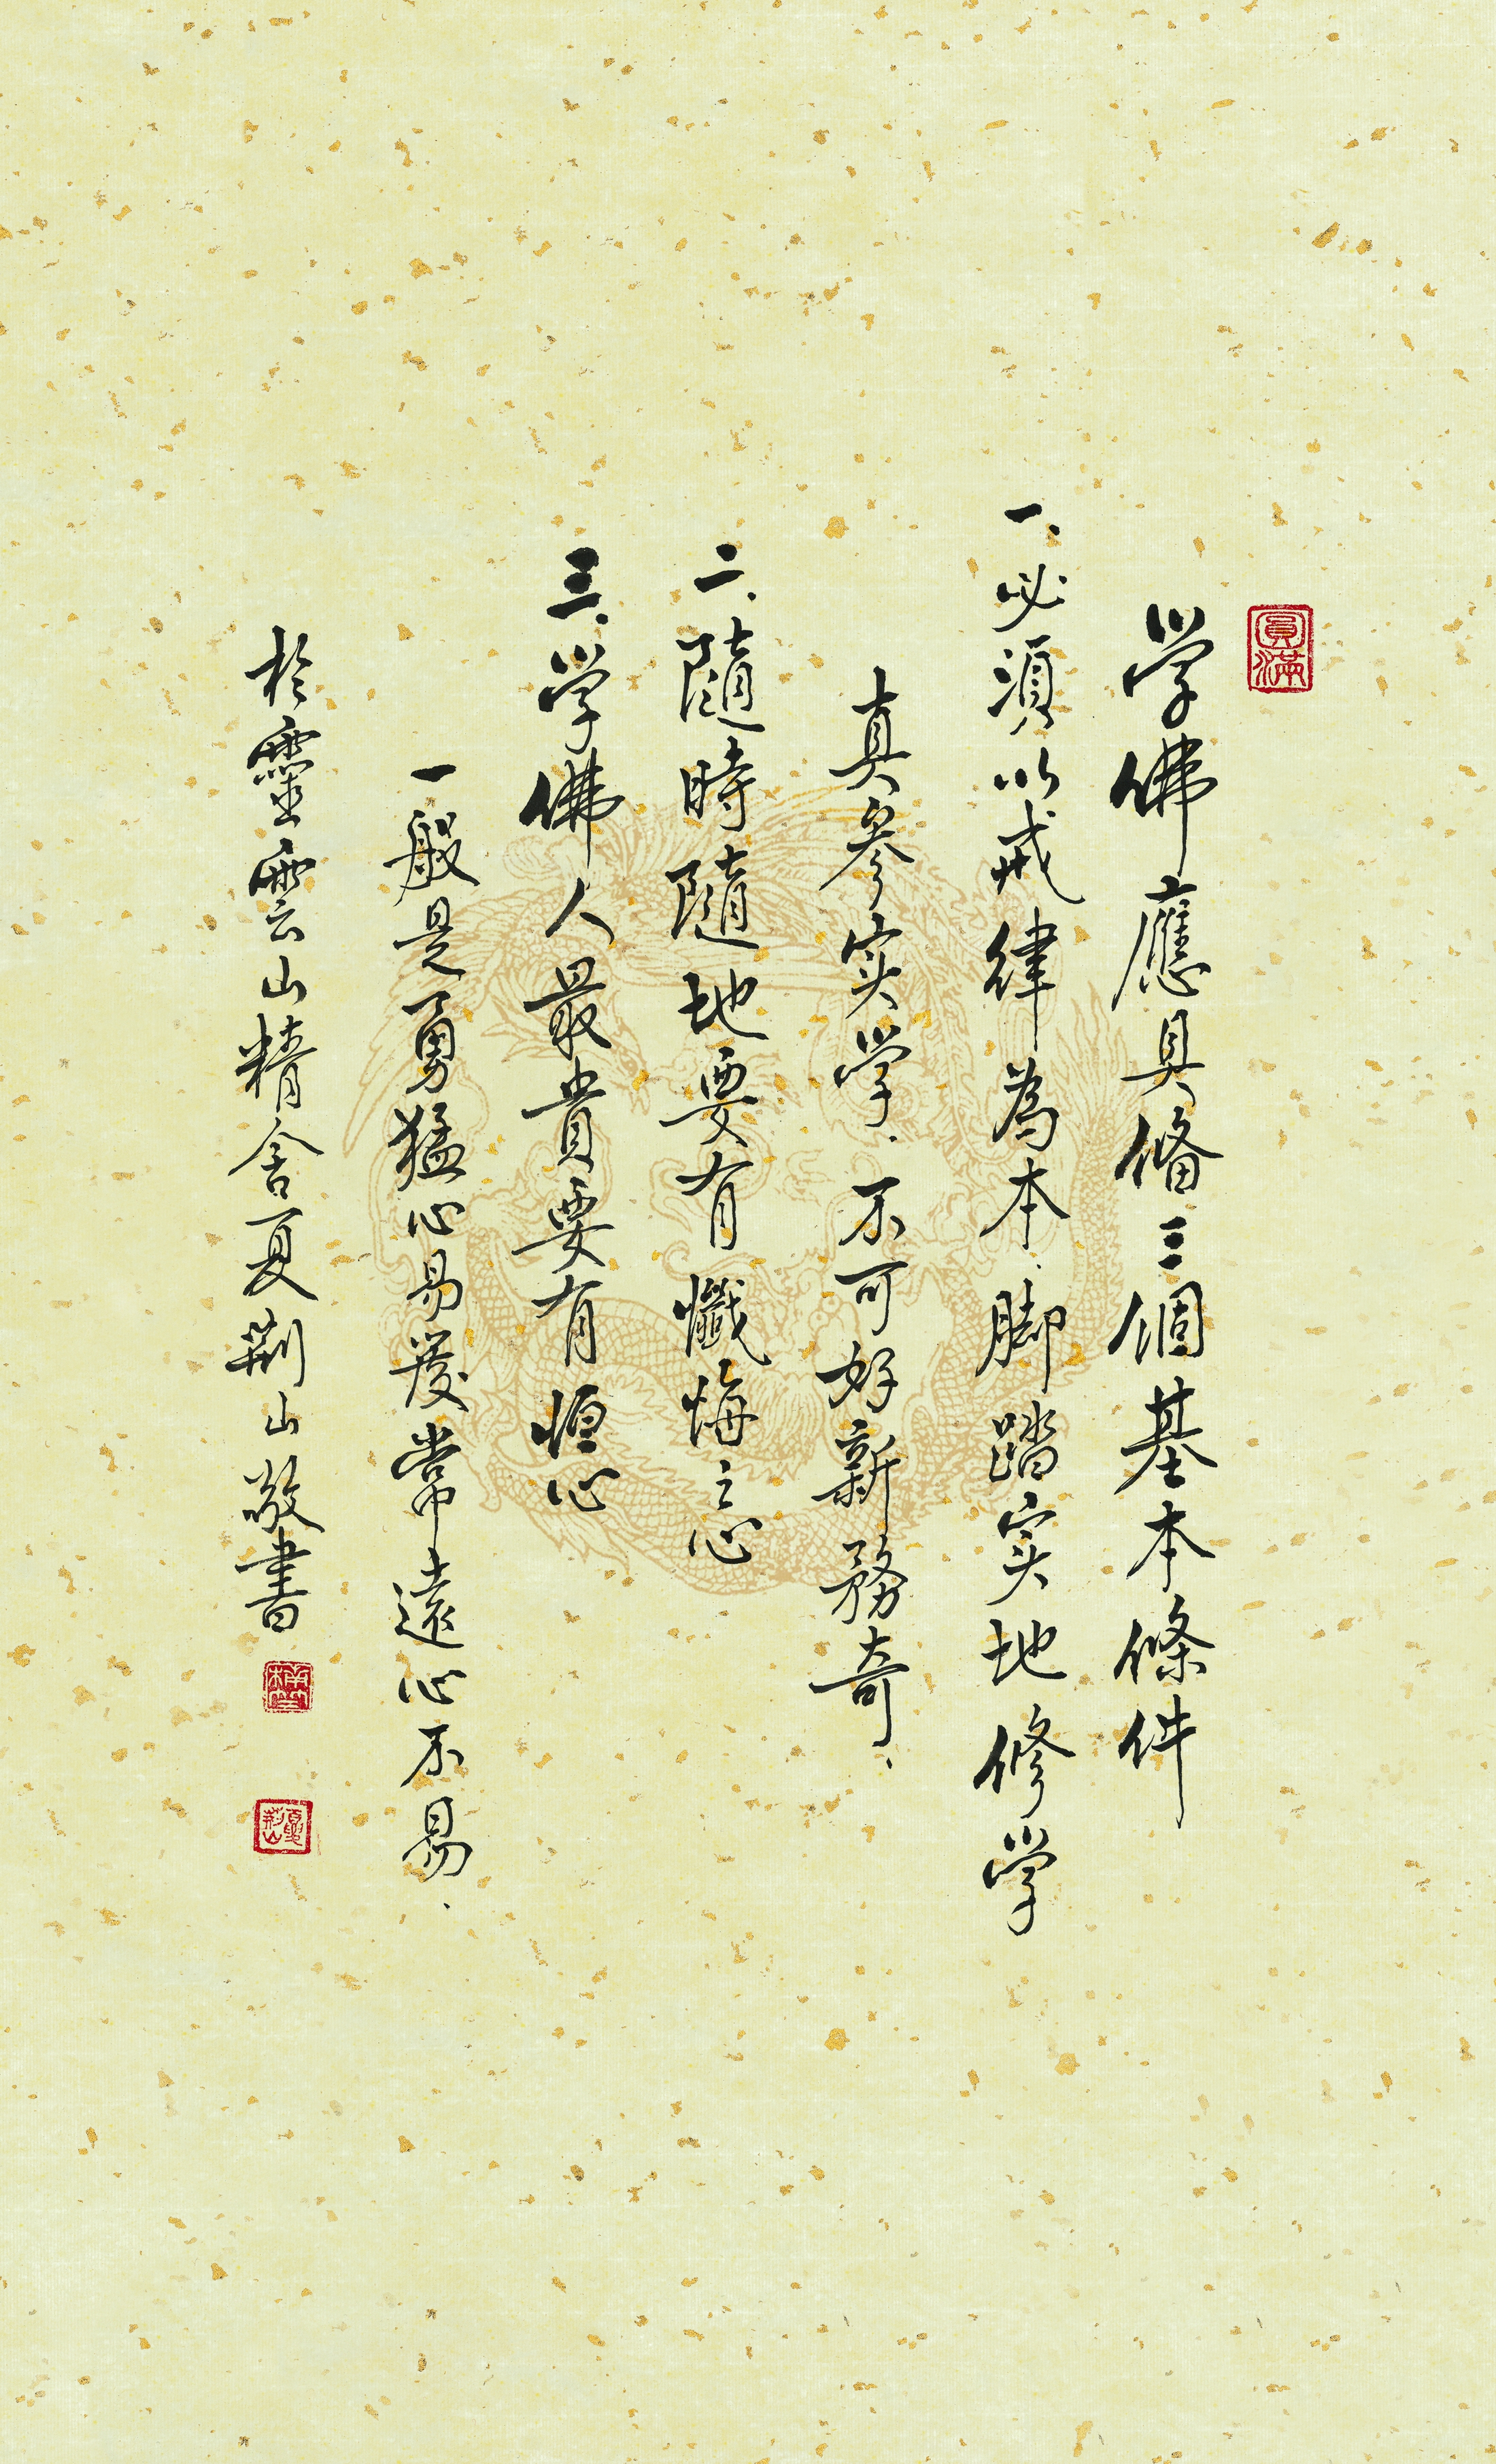 圓滿
学佛應具俻三個基本條件
一、必須以戒律為本.脚踏实地修学
真參实学.不可好新務奇.
二、隨時隨地要有懺悔之心
三、学佛人最貴要有恒心
一般是勇猛心易發常遠心不易.
於靈雲山精舍夏荆山敬書
夏荆山